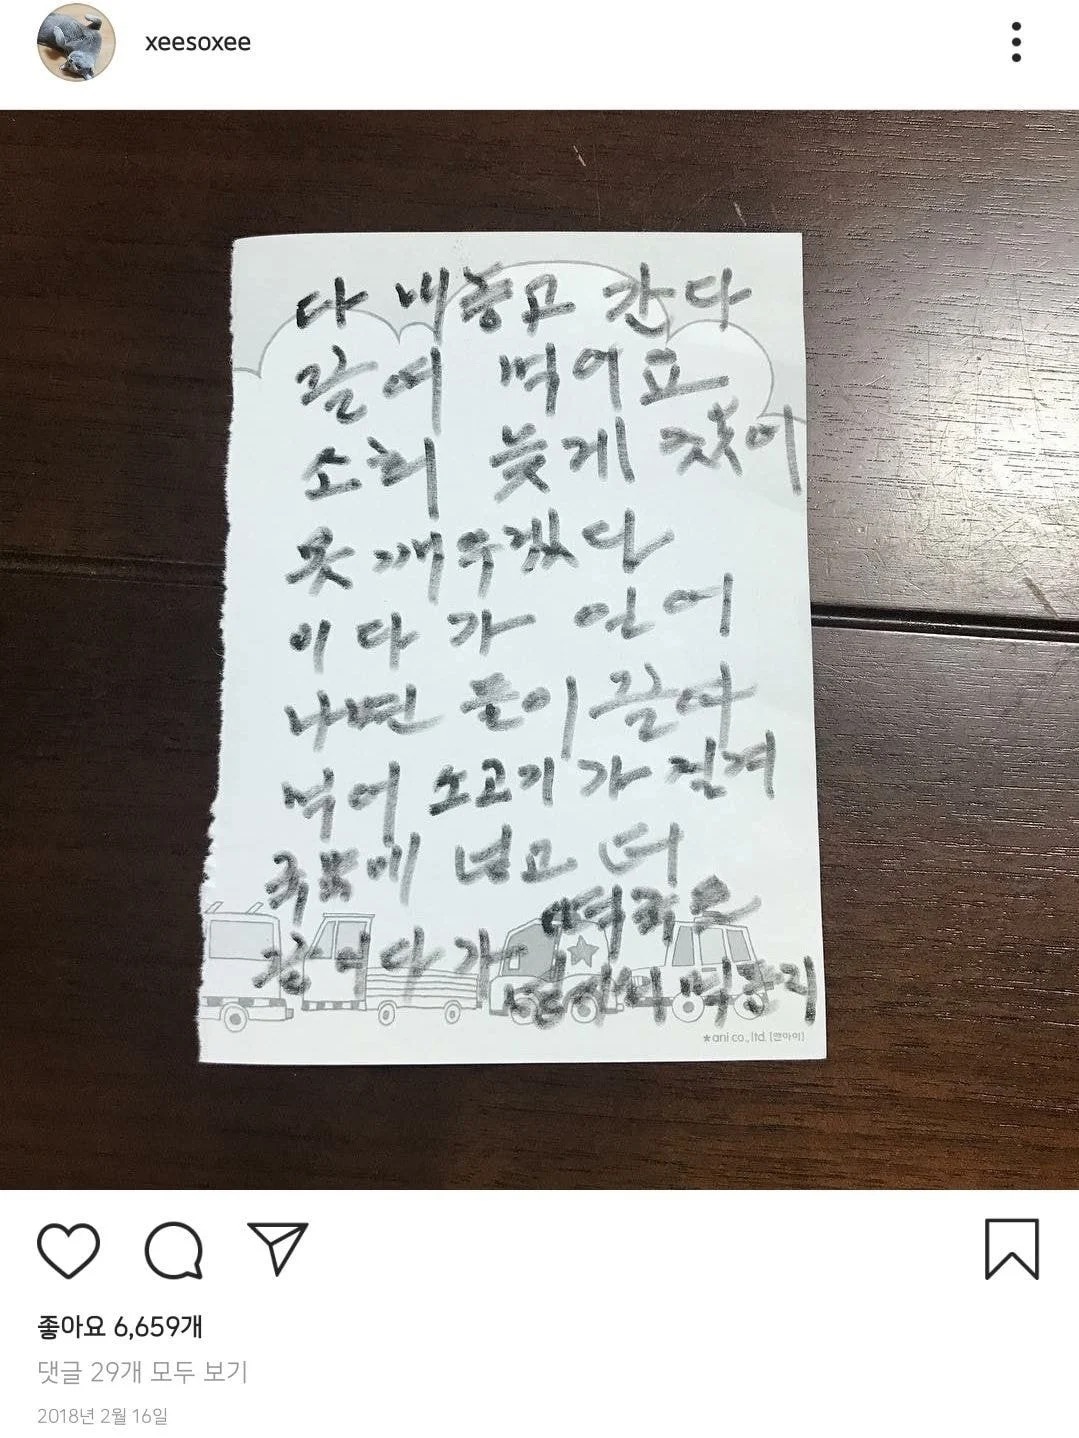 xeesoxee
다 내놓고 간다
끌여 먹어요
소희 늦게 잤어
못깨우겠다
이다가 일어
나면 둘이 끌여
먹어 소고기가 질겨
넣고 떠
떡국은
끌여다가
★ani co., ltd. [앤아이]
좋아요 6,659개
댓글 29개 모두 보기
2018년 2월 16일